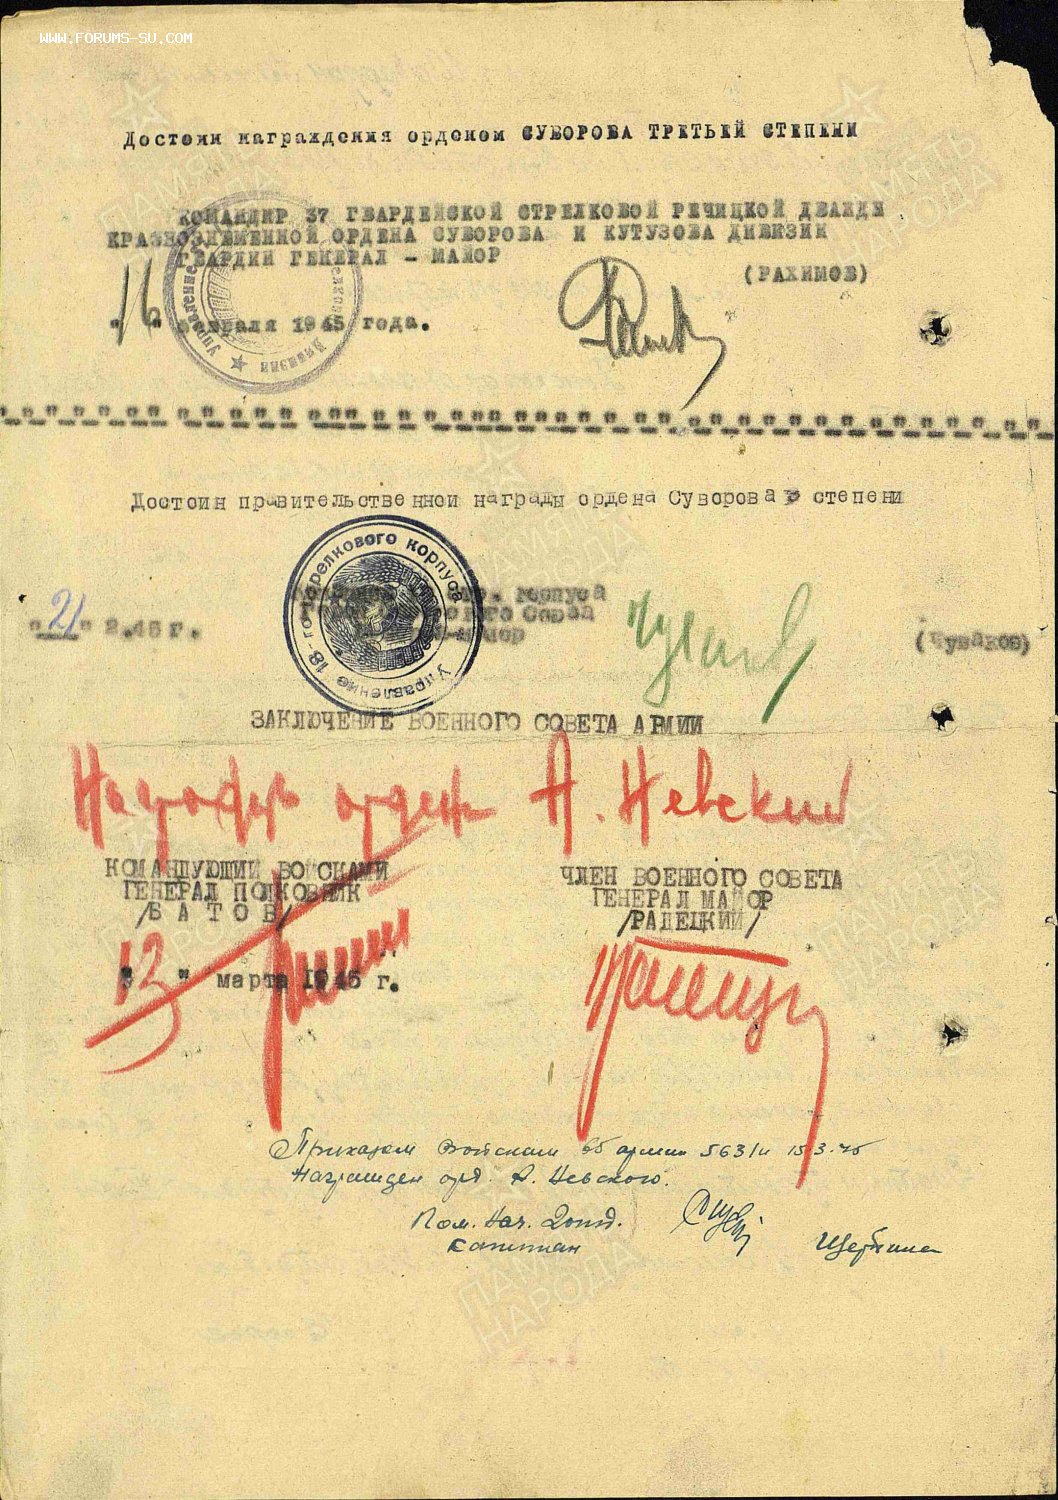 WWW.FORUMS-SU.COM
Достоин награждения орденом СУВОРОВА ТРЕТЬЕЙ СТЕПЕНИ
КОМАНДИР 37 ГВАРДЕЙСКОЙ СТРЕЛКОВОЙ РЕЧИЦКОЙ ДВАЖДЫ
КРАСНОЗНАМЕННОЙ ОРДЕНА СУВОРОВА И КУТУЗОВА ДИВИЗИИ
ГВАРДИИ ГЕНЕРАЛ - МАЙОР
(РАХИМОВ)
"16" февраля 1945 года.
Управление
дивизии
Достоин правительственной награды ордена Суворова 3 степени
Управление 18-го стрелкового корпуса
стр. корпуса
Союза
"21" 2.45 г.
(Чуваков)
ЗАКЛЮЧЕНИЕ ВОЕННОГО СОВЕТА АРМИИ
Наградить орден А. Невский
КОМАНДУЮЩИЙ ВОЙСКАМИ
ГЕНЕРАЛ ПОЛКОВНИК
/Б А Т О В/
ЧЛЕН ВОЕННОГО СОВЕТА
ГЕНЕРАЛ МАЙОР
/РАДЕЦКИЙ/
"13" марта 1945 г.
Приказом Войскам 65 армии 563/н 15.3.45
Награжден орд. А. Невского.
Пом. Нач. 2 отд.
Капитан
ПАМЯТЬ
НАРОДА